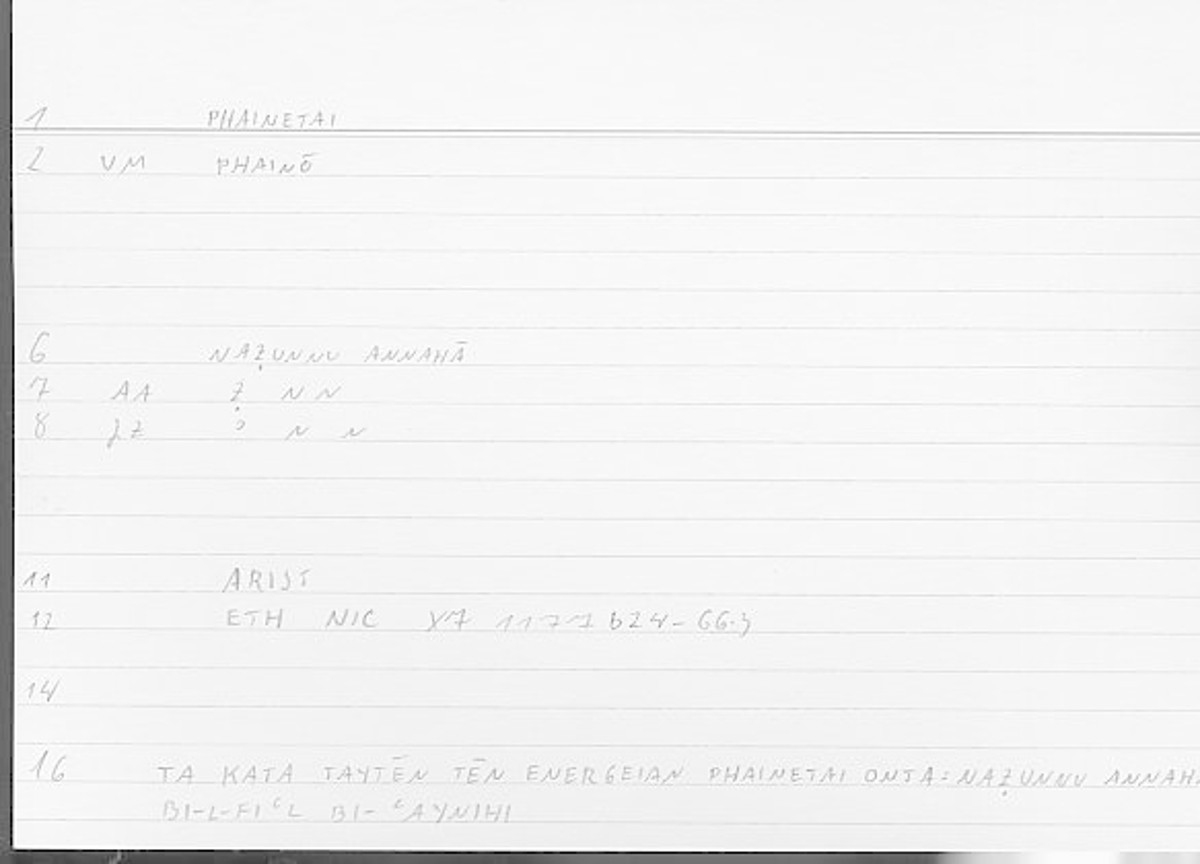 1 PHAINETAI
2 VM PHAINŌ
6 NAẒUNNU ANNAHĀ
7 AA Ẓ N N
8 N N
11 ARIST
12 ETH NIC
14
16 TA KATA TAYTĒN TĒN ENERGEIAN PHAINETAI ONTA: NAẒUNNU ANNAH
BI-L-FIʿL BI-ʿAYNIHI